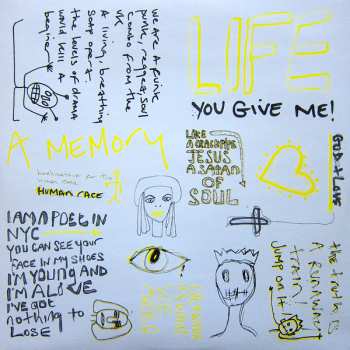 We are a punk
punk, reggae, soul
Combo from the
UK
A living, breathing
soap opera.
the levels of drama
would kill a
beginner
LIFE
YOU GIVE ME!
A MEMORY
HUMAN RACE
LIKE
A CRACKPIPE
JESUS
A SATAN
OF
SOUL
GOD + LOVE
I AM A POET IN
NYC
YOU CAN SEE YOUR
FACE IN MY SHOES
I'M YOUNG AND
I'M ALIVE
I'VE GOT
nothing to
LOSE
the truth is
A RUNAWAY
TRAIN!
JUMP ON IT